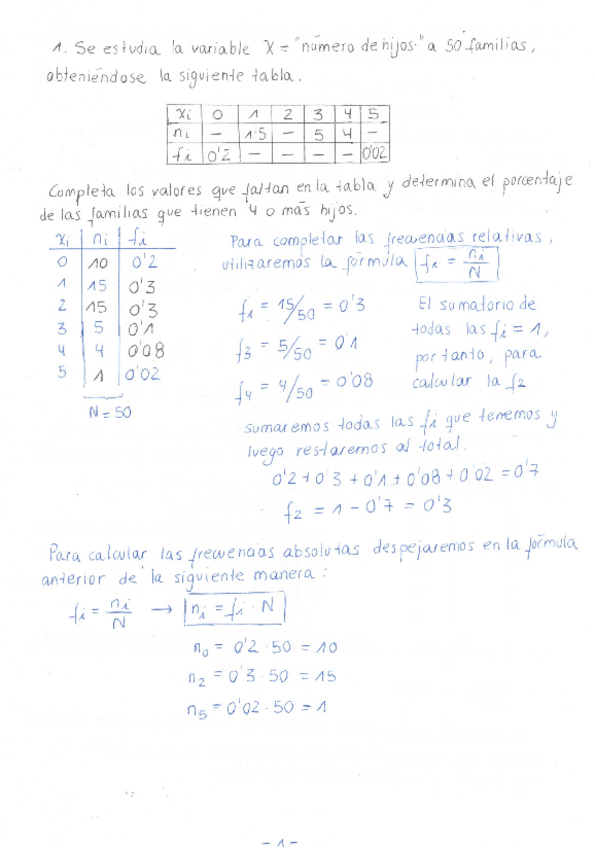 1. Se estudia la variable X = "número de hijos" a 50 familias,
obteniéndose la siguiente tabla.
xi 0 1 2 3 4 5
ni — 15 — 5 4 —
fi 0'2 — — — — 0'02
Completa los valores que faltan en la tabla y determina el porcentaje
de las familias que tienen 4 o más hijos.
xi ni fi
0 10 0'2
1 15 0'3
2 15 0'3
3 5 0'1
4 4 0'08
5 1 0'02
N = 50
Para completar las frecuencias relativas,
utilizaremos la fórmula fi = ni/N
f1 = 15/50 = 0'3
f3 = 5/50 = 0'1
f4 = 4/50 = 0'08
El sumatorio de
todas las fi = 1,
por tanto, para
calcular la f2
sumaremos todas las fi que tenemos y
luego restaremos al total.
0'2 + 0'3 + 0'1 + 0'08 + 0'02 = 0'7
f2 = 1 - 0'7 = 0'3
Para calcular las frecuencias absolutas despejaremos en la fórmula
anterior de la siguiente manera:
fi = ni/N → ni = fi · N
n0 = 0'2 · 50 = 10
n2 = 0'3 · 50 = 15
n5 = 0'02 · 50 = 1
- 1 -